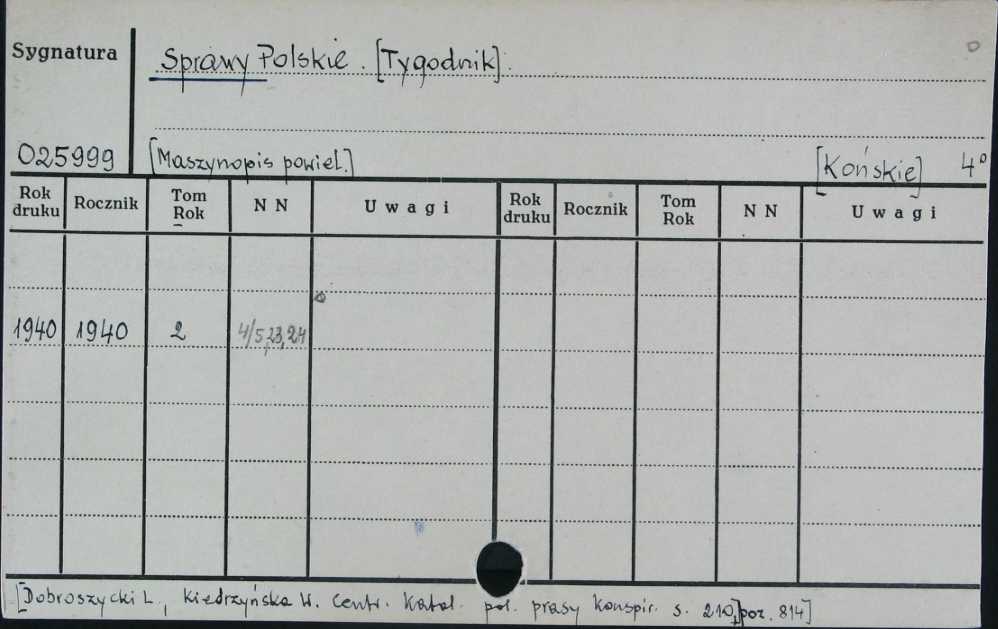 Sygnatura
Sprawy Polskie. [Tygodnik].
025999 [Maszynopis powiel.] [Końskie] 4°
Rok druku Rocznik Tom Rok N N Uwagi Rok druku Rocznik Tom Rok N N Uwagi
1940 1940 2 4/5,23,24
[Dobroszycki L., Kiedrzyńska W. Centr. katal. pol. prasy konspir. s. 210, poz. 814]